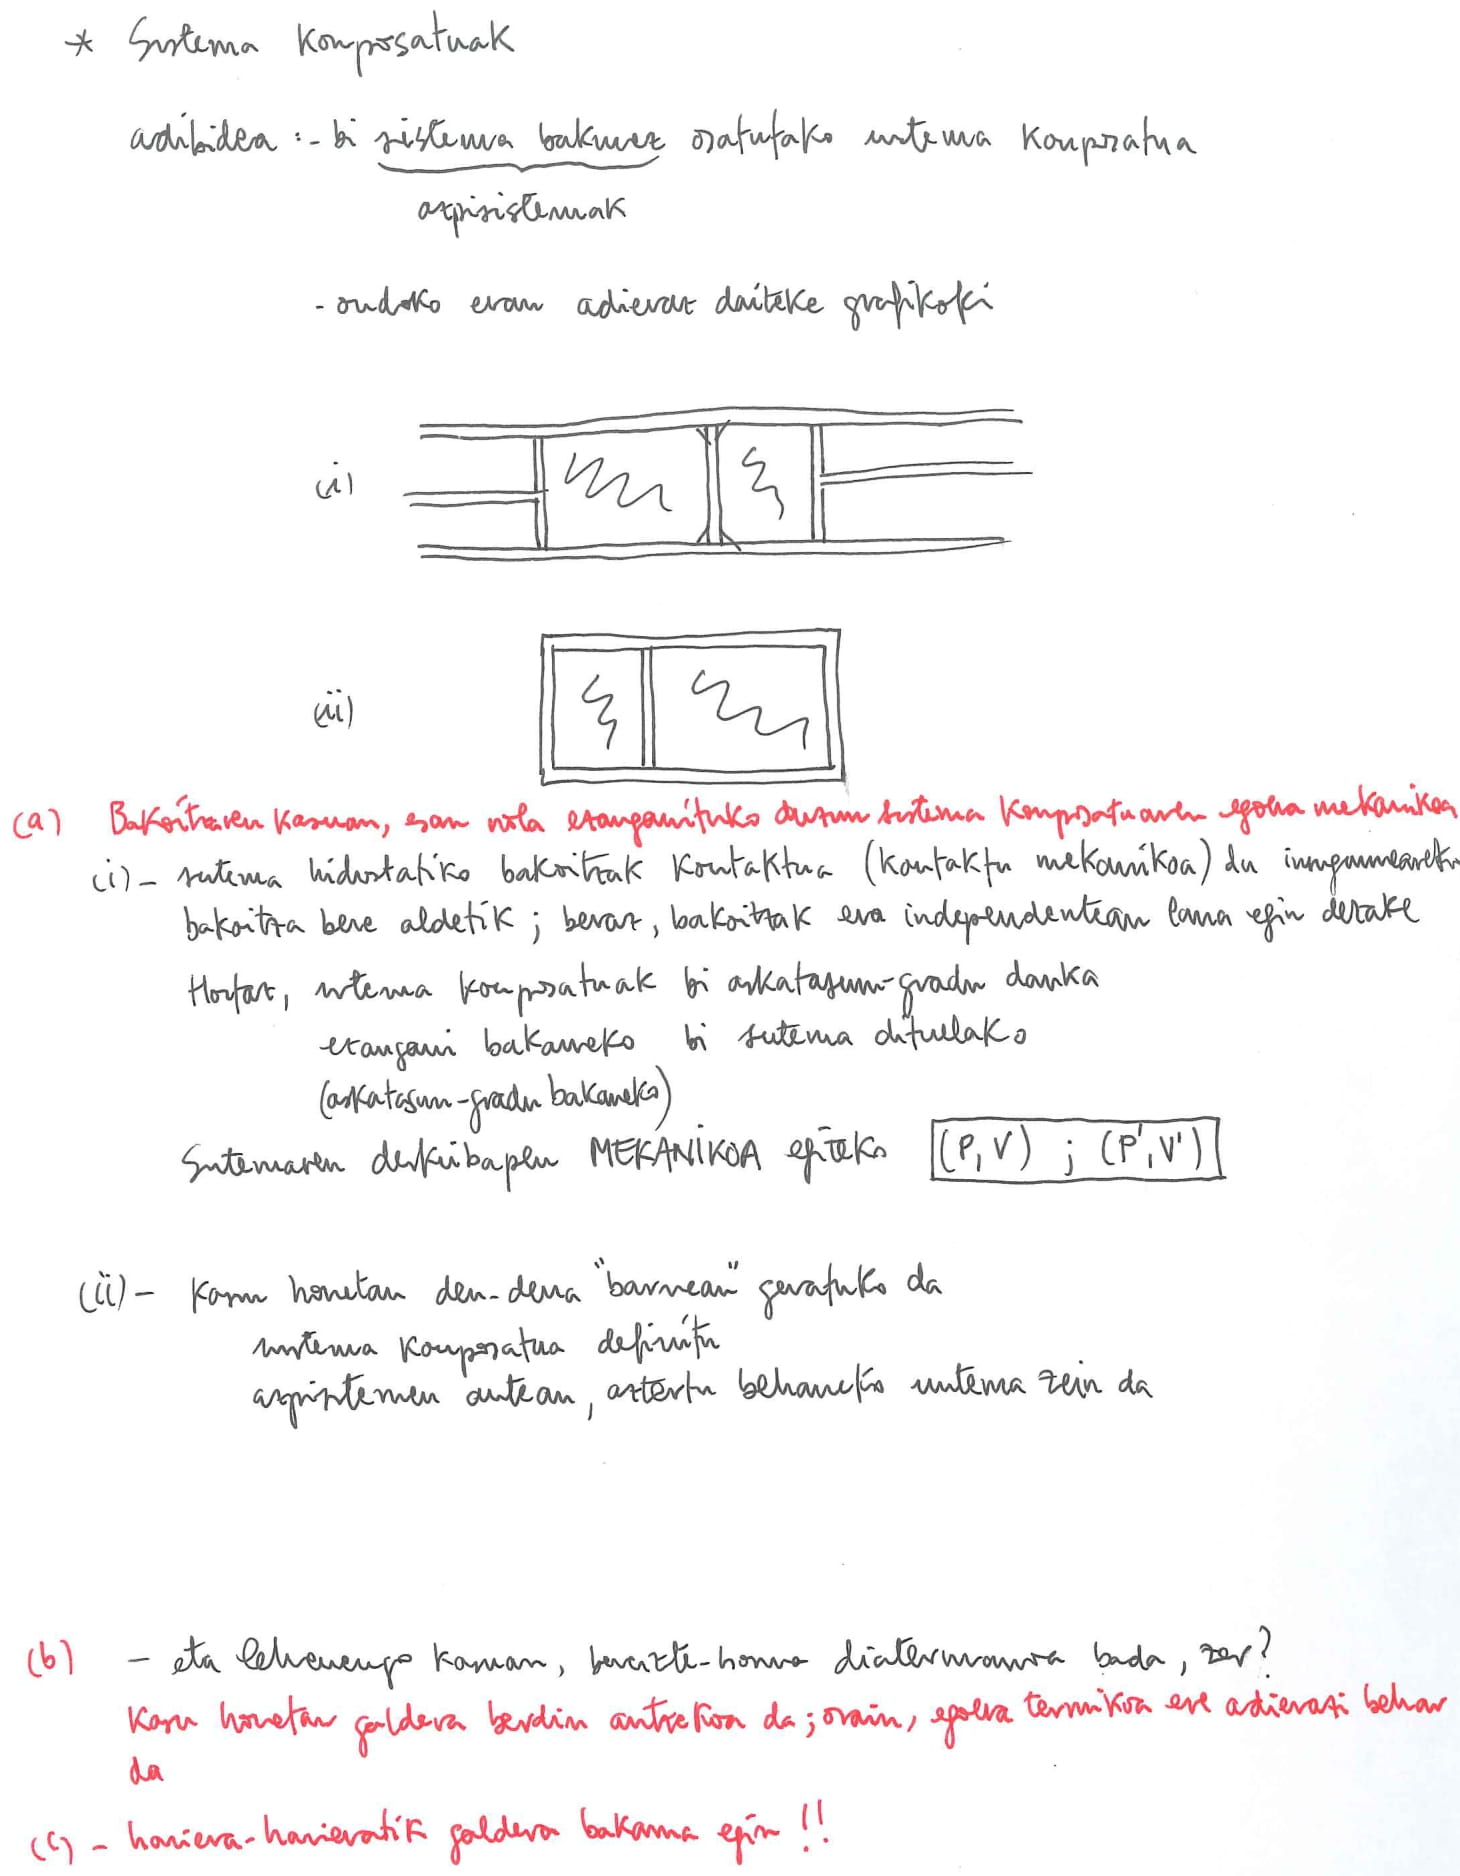 * Sistema Konposatuak
adibidea :- bi sistema bakunez osatutako sistema Konposatua
azpisistemak
- ondoko eran adieraz daiteke grafikoki
(i)
(ii)
(a) Bakoitzaren Kasuan, esan nola ezaugarrituko duzun sistema Konposatuaren egoera mekanikoa
(i) - sistema hidrostatiko bakoitzak Kontaktua (Kontaktu mekanikoa) du ingurunearekin
bakoitza bere aldetik ; beraz, bakoitzak era independentean lana egin dezake
Hortaz, sistema konposatuak bi askatasun-gradu dauka
ezaugarri bakarreko bi sistema dituelako
(askatasun-gradu bakarreko)
Sistemaren deskribapen MEKANIKOA egiteko (P,V) ; (P',V')
(ii) - Kasu honetan den-dena "barnean" geratuko da
sistema Konposatua definitu
azpisistemen artean, aztertu beharreko sistema zein da
(b) - eta lehenengo Kasuan, bereizte-horma diatermanoa bada, zer?
Kasu honetan galdera berdin antzekoa da ; orain, egoera termikoa ere adierazi behar
da
(c) - hasiera-hasieratik galdera bakarra egin !!